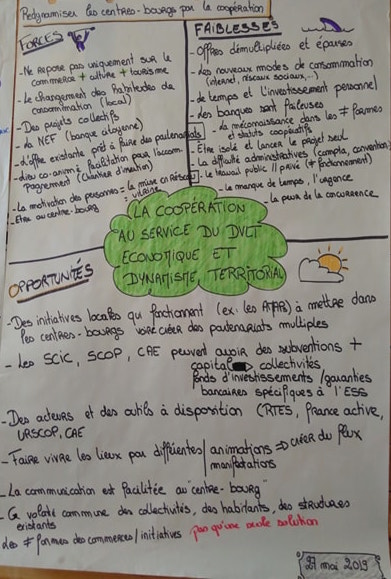 Redynamiser les centres-bourgs par la coopération
FORCES
- Ne repose pas uniquement sur le
commerce + culture + tourisme
- Le changement des habitudes de
consommation (local)
- Des projets collectifs
- La NEF (banque citoyenne)
- L'offre existante prêt à faire des partenariats
- Lieu co-animé + facilitation pour l'accom-
pagnement (chantier d'insertion)
- La motivation des personnes = la mise en réseau
- Être au centre-bourg
FAIBLESSES
- Offres démultipliées et éparses
- Les nouveaux modes de consommation
(internet, réseaux sociaux,..)
- Le temps et l'investissement personnel
- Les banques sont frileuses
- La méconnaissance dans les ≠ formes
et statuts coopératifs
- Être isolé et lancer le projet seul
- La difficulté administratives (compta, convention)
- Le travail public // privé (≠ fonctionnement)
- Le manque de temps, l'urgence
- La peur de la concurrence
LA COOPÉRATION
AU SERVICE DU DVLT
ÉCONOMIQUE ET
DYNAMISME TERRITORIAL
OPPORTUNITÉS
- Des initiatives locales qui fonctionnent à mettre dans
les centres-bourgs voire créer des partenariats multiples
- Les SCIC, SCOP, CAE peuvent avoir des subventions +
capital collectivités
fonds d'investissements / garanties
bancaires spécifiques à l'ESS
- Des acteurs et des outils à disposition (RTES, France active,
URSCOP, CAE
- Faire vivre les lieux par différentes animations / manifestations ⇒ créer du flux
- La communication est facilitée au "centre-bourg"
- La volonté commune des collectivités, des habitants, des structures
existants
Les ≠ formes des commerces / initiatives pas qu'une seule solution
27 mai 2019